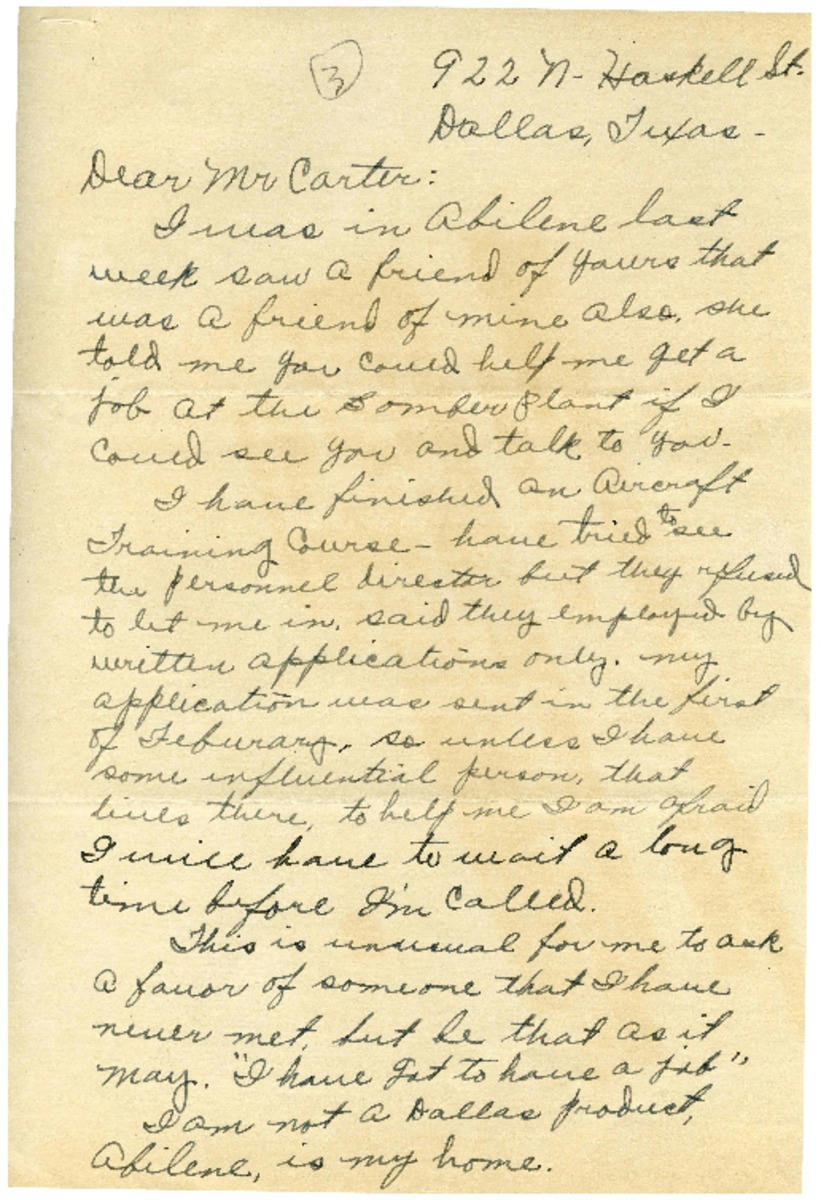 3
922 N- Haskell St.
Dallas, Texas -
Dear Mr Carter:
I was in Abilene last
week saw a friend of yours that
was a friend of mine also. she
told me you could help me get a
job at the Bomber Plant if I
could see you and talk to you.
I have finished an Aircraft
Training Course - have tried to see
the personnel director but they refused
to let me in. said they employed by
written applications only. my
application was sent in the first
of Feburary, so unless I have
some influential person, that
lives there, to help me I am afraid
I will have to wait a long
time before I'm called.
This is unusual for me to ask
a favor of someone that I have
never met, but be that as it
may. "I have got to have a job"
I am not a Dallas product,
Abilene, is my home.